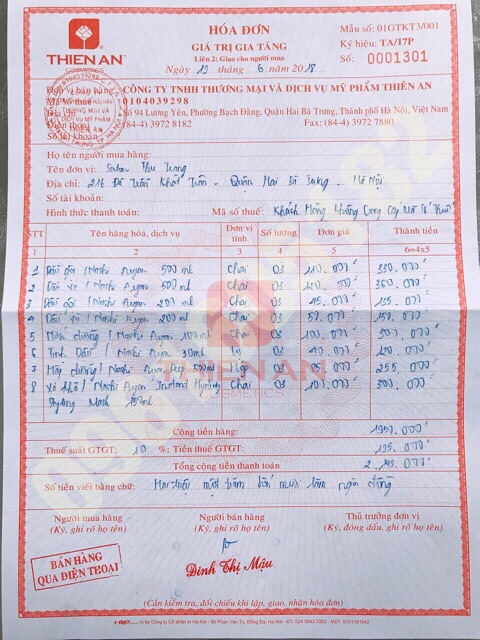 THIEN AN
COSMETICS
HÓA ĐƠN
GIÁ TRỊ GIA TĂNG
Liên 2: Giao cho người mua
Ngày 19 tháng 6 năm 2018
Mẫu số: 01GTKT3/001
Ký hiệu: TA/17P
Số: 0001301
Đơn vị bán hàng: CÔNG TY TNHH THƯƠNG MẠI VÀ DỊCH VỤ MỸ PHẨM THIÊN AN
Mã số thuế: 0104039298
Địa chỉ: Số 94 Lương Yên, Phường Bạch Đằng, Quận Hai Bà Trưng, Thành phố Hà Nội, Việt Nam
Điện thoại: (84-4) 3972 8182 Fax: (84-4) 3972 7880
Số tài khoản:
Họ tên người mua hàng:
Tên đơn vị: Salon Thu Trang
Địa chỉ: Trần Khát Chân - Quận Hai Bà Trưng - Hà Nội
Số tài khoản:
Hình thức thanh toán: Mã số thuế: Khách Hàng Không Cung Cấp Mã Số Thuế
STT Tên hàng hóa, dịch vụ Đơn vị tính Số lượng Đơn giá Thành tiền
1 2 3 4 5 6=4x5
1 Dầu gội / Nashi Argan 500 ml Chai 03 110.000 330.000
2 Dầu xả / Nashi Argan 500 ml Chai 03 120.000 360.000
3 Dầu gội / Nashi Argan 200 ml Chai 03 45.000 135.000
4 Dầu xả / Nashi Argan 200 ml Chai 03
5 dưỡng / Nashi Argan 100 ml Chai 03
6 Tinh Dầu / Nashi Argan 30ml 03 40.000 120.000
7 Hấp dưỡng / Nashi Argan Deep 500ml Hộp 03 85.000 255.000
8 Xả khô / Nashi Argan Instant Chai 03 300.000
Styling Mask 150ml
Cộng tiền hàng: 1950.000
Thuế suất GTGT: 10 %; Tiền thuế GTGT: 195.000
Tổng cộng tiền thanh toán 2.145.000
Số tiền viết bằng chữ: Hai triệu một trăm bốn mươi lăm ngàn đồng
Người mua hàng Người bán hàng Thủ trưởng đơn vị
(Ký, ghi rõ họ tên) (Ký, ghi rõ họ tên) (Ký, đóng dấu, ghi rõ họ tên)
BÁN HÀNG
QUA ĐIỆN THOẠI
Đinh Thị Mậu
(Cần kiểm tra, đối chiếu khi lập, giao, nhận hóa đơn)